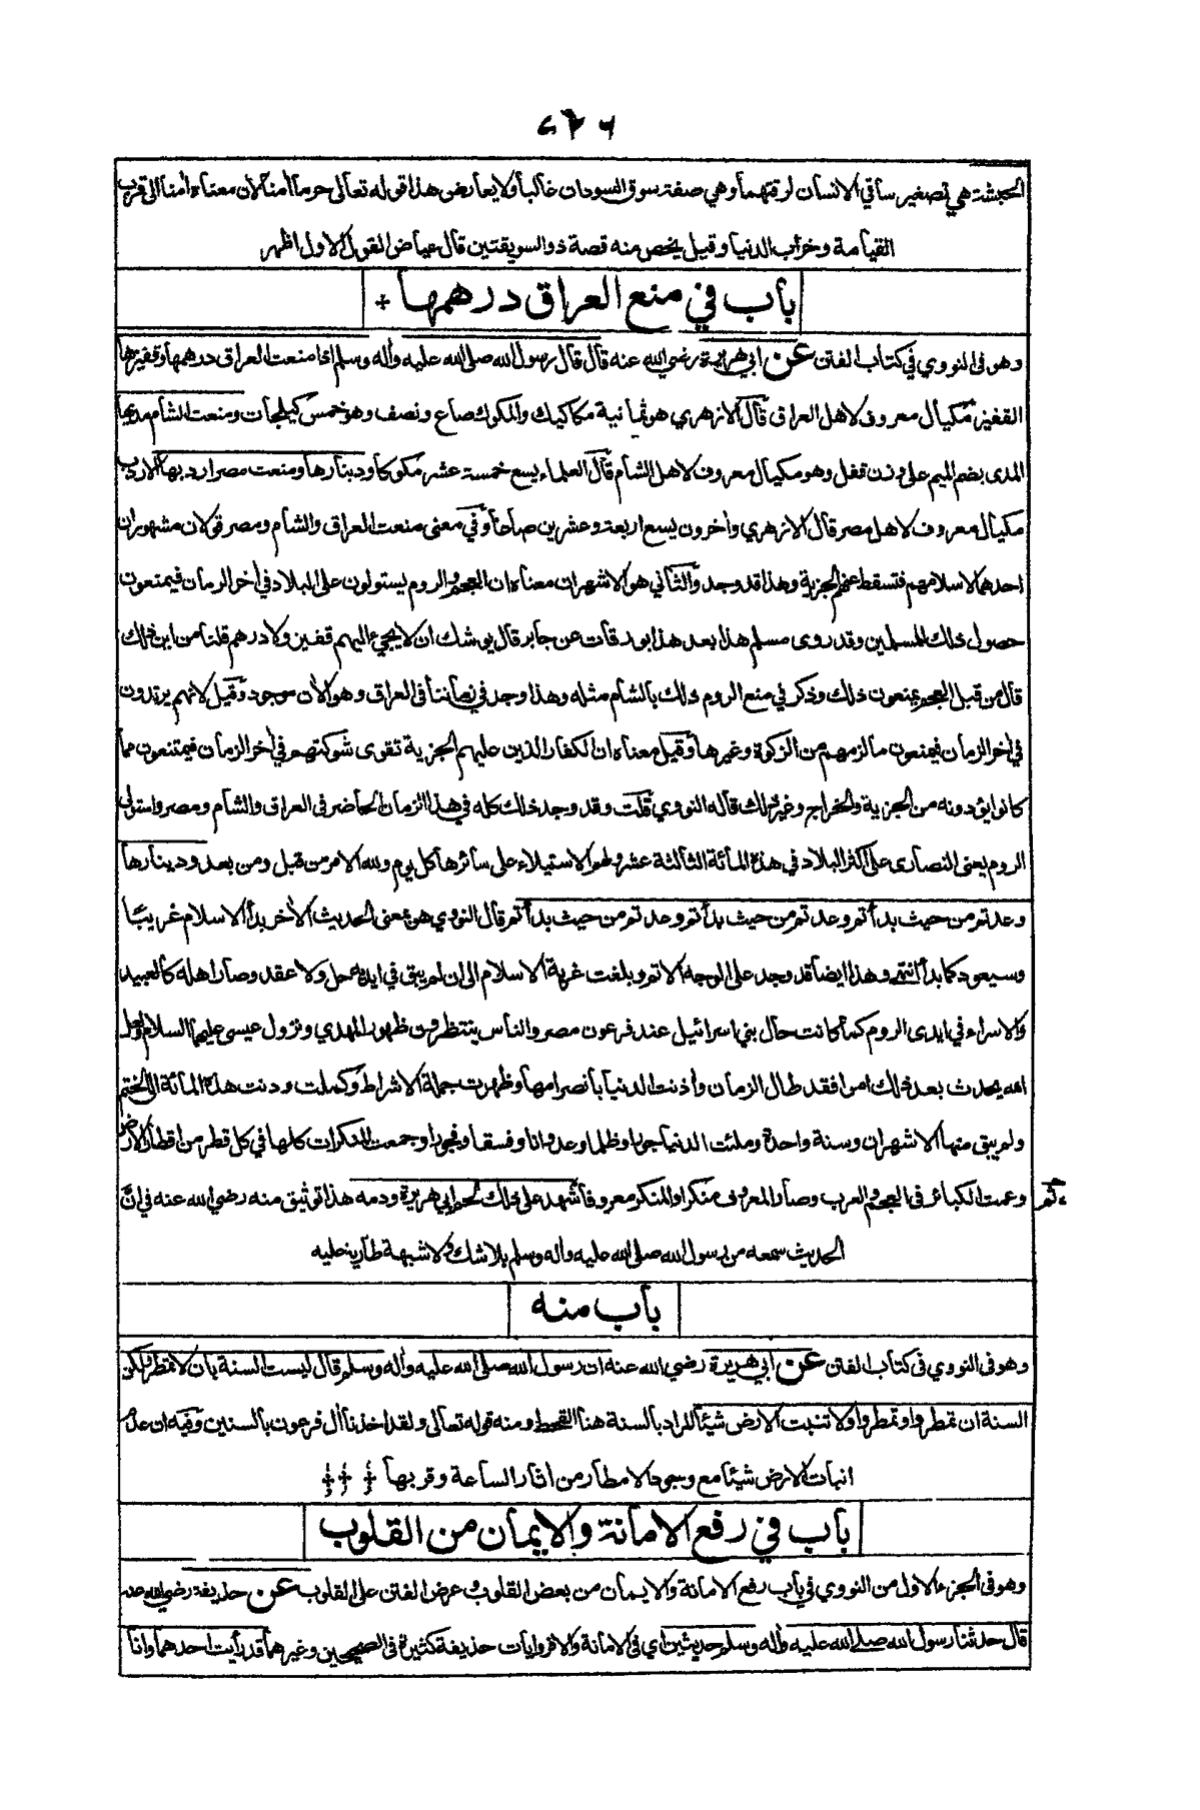 ٧٢٦
الحبشة هي تصغير ساقي الانسان لرقتهما وهي صفة سوق السودان غالبا ولا يعارض هذا قوله تعالى حرما امنا لان معناه امنا الى قرب
القيامة وخراب الدنيا وقيل يخص منه قصة ذو السويقتين قال عياض القول الاول اظهر
باب في منع العراق درهمها
وهو فى النووي في كتاب الفتن عن ابي هريرة رضي الله عنه قال قال رسول الله صلى الله عليه واله وسلم اذا منعت العراق درهمها وقفيزها
القفيز مكيال معروف لاهل العراق قال الازهري هو ثمانية مكاكيك والمكوك صاع ونصف وهو خمس كيلجات ومنعت الشام مديها
المدى بضم الميم على وزن قفل وهو مكيال معروف لاهل الشام قال العلماء يسع خمسة عشر مكوكا ودينارها ومنعت مصر اردبها الاردب
مكيال معروف لاهل مصر قال الازهري واخرون يسع اربعة وعشرين صاعا وفي معنى منعت العراق والشام ومصر قولان مشهوران
احدهما لاسلامهم فتسقط عنهم الجزية وهذا قد وجد والثاني هو الاشهر ان معناه ان العجم والروم يستولون على البلاد في اخر الزمان فيمنعون
حصول ذلك للمسلمين وقد روى مسلم هذا بعد هذا بورقات عن جابر قال يوشك ان لا يجيء اليهم قفيز ولا درهم قلنا من اين ذلك
قال من قبل العجم يمنعون ذلك وذكر في منع الروم ذلك بالشام مثله وهذا وجد في زماننا فى العراق وهو الان موجود وقيل لانهم يرتدون
في اخر الزمان فيمنعون ما لزمهم من الزكوة وغيرها وقيل معناه ان الكفار الذين عليهم الجزية تقوى شوكتهم في اخر الزمان فيمتنعون مما
كانوا يؤدونه من الجزية والخراج وغير ذلك قاله النووي قلت وقد وجد ذلك كله في هذا الزمان الحاضر فى العراق والشام ومصر واستولى
الروم يعنى النصارى على اكثر البلاد في هذه المائة الثالثة عشر ولهم الاستيلاء على سائرها كل يوم ولله الامر من قبل ومن بعد ودينارها
وعدتم من حيث بدأتم وعدتم من حيث بدأتم وعدتم من حيث بدأتم قال النووي هو بمعنى الحديث الاخر بدأ الاسلام غريبا
وسيعود كما بدأ انتهى وهذا ايضا قد وجد على الوجه الاتم وبلغت غربة الاسلام الى ان لم يبق في ايديهم حل ولا عقد وصار اهله كالعبيد
والاسراء في ايدى الروم كما كانت حال بني اسرائيل عند فرعون مصر والناس ينتظرون ظهور المهدي ونزول عيسى عليهما السلام ولعل
الله يحدث بعد ذلك امرا فقد طال الزمان واذنت الدنيا بانصرامها وظهرت جملة الاشراط وكملت ودنت هذه المائة الى الختم
ولم يبق منها الا شهران وسنة واحدة وملئت الدنيا جورا وظلما وعدوانا وفسقا وفجورا وجمعت المنكرات كلها في كل قطر من اقطار الارض
وعمت الكبائر فى العجم والعرب وصار المعروف منكرا والمنكر معروفا شهد على ذلك لحم ابي هريرة ودمه هذا توثيق منه رضي الله عنه في ان
الحديث سمعه من رسول الله صلى الله عليه واله وسلم بلا شك ولا شبهة طارية عليه
باب منه
وهو فى النووي فى كتاب الفتن عن ابي هريرة رضي الله عنه ان رسول الله صلى الله عليه واله وسلم قال ليست السنة بان لا تمطروا ولكن
السنة ان تمطروا وتمطروا ولا تنبت الارض شيئا المراد بالسنة هنا القحط ومنه قوله تعالى ولقد اخذنا أل فرعون بالسنين وفيه ان عدم
انبات الارض شيئا مع وجود الامطار من اثار الساعة وقربها
باب في رفع الامانة والايمان من القلوب
وهو فى الجزء الاول من النووي في باب رفع الامانة والايمان من بعض القلوب وعرض الفتن على القلوب عن حذيفة رضي الله عنه
قال حدثنا رسول الله صلى الله عليه واله وسلم حديثين اي فى الامانة والا فروايات حذيفة كثيرة فى الصحيحين وغيرهما قد رأيت احدهما وانا